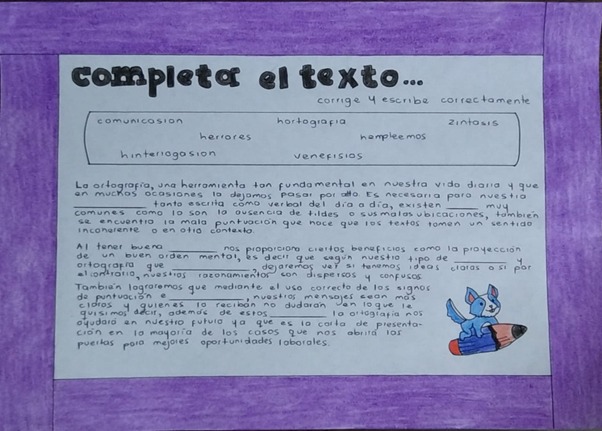 completa el texto...
corrige y escribe correctamente
comunicasion hortografia zintasis
herrores hempleemos
hinterrogasion venefisios
La ortografía, una herramienta tan fundamental en nuestra vida diaria y que
en muchas ocasiones la dejamos pasar por alto. Es necesaria para nuestra
__________ tanto escrita como verbal del día a día, existen _____ muy
comunes como lo son la ausencia de tildes o sus malas ubicaciones, también
se encuentra la mala puntuación que hace que los textos tomen un sentido
incoherente o en otro contexto.
Al tener buena __________ nos proporciona ciertos beneficios como la proyección
de un buen orden mental, es decir que según nuestro tipo de ________ y
ortografía que ____________, dejaremos ver si tenemos ideas claras o si por
el contrario, nuestros razonamientos son dispersos y confusos.
También lograremos que mediante el uso correcto de los signos
de puntuación e ____________, nuestros mensajes sean más
claros y quienes lo reciban no dudarán en lo que le
quisimos decir, además de estos ________ la ortografía nos
ayudará en nuestro futuro ya que es la carta de presenta-
ción en la mayoría de los casos que nos abrirá las
puertas para mejores oportunidades laborales.